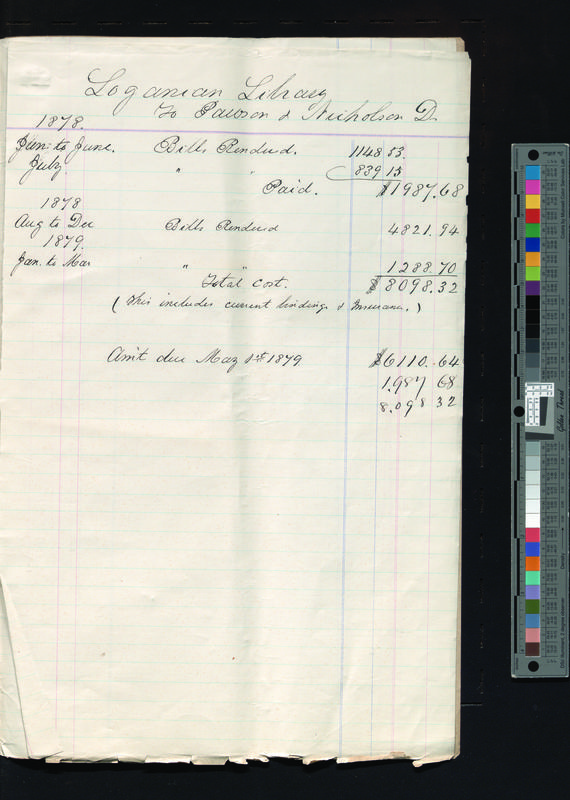 Loganian Library
To Pawson & Nicholson Dr.
1878.
Jan. to June. Bills Rendered. 1148 53.
July " " 839 15
Paid. $1987.68
1878
Aug to Dec Bills Rendered 4821.94
1879.
Jan. to Mar " " 1288.70
Total Cost. $8098.32
(This includes current bindings & Insurance.)
Am't due May 1st 1879. $6110.64
1.987 68
8.098 32